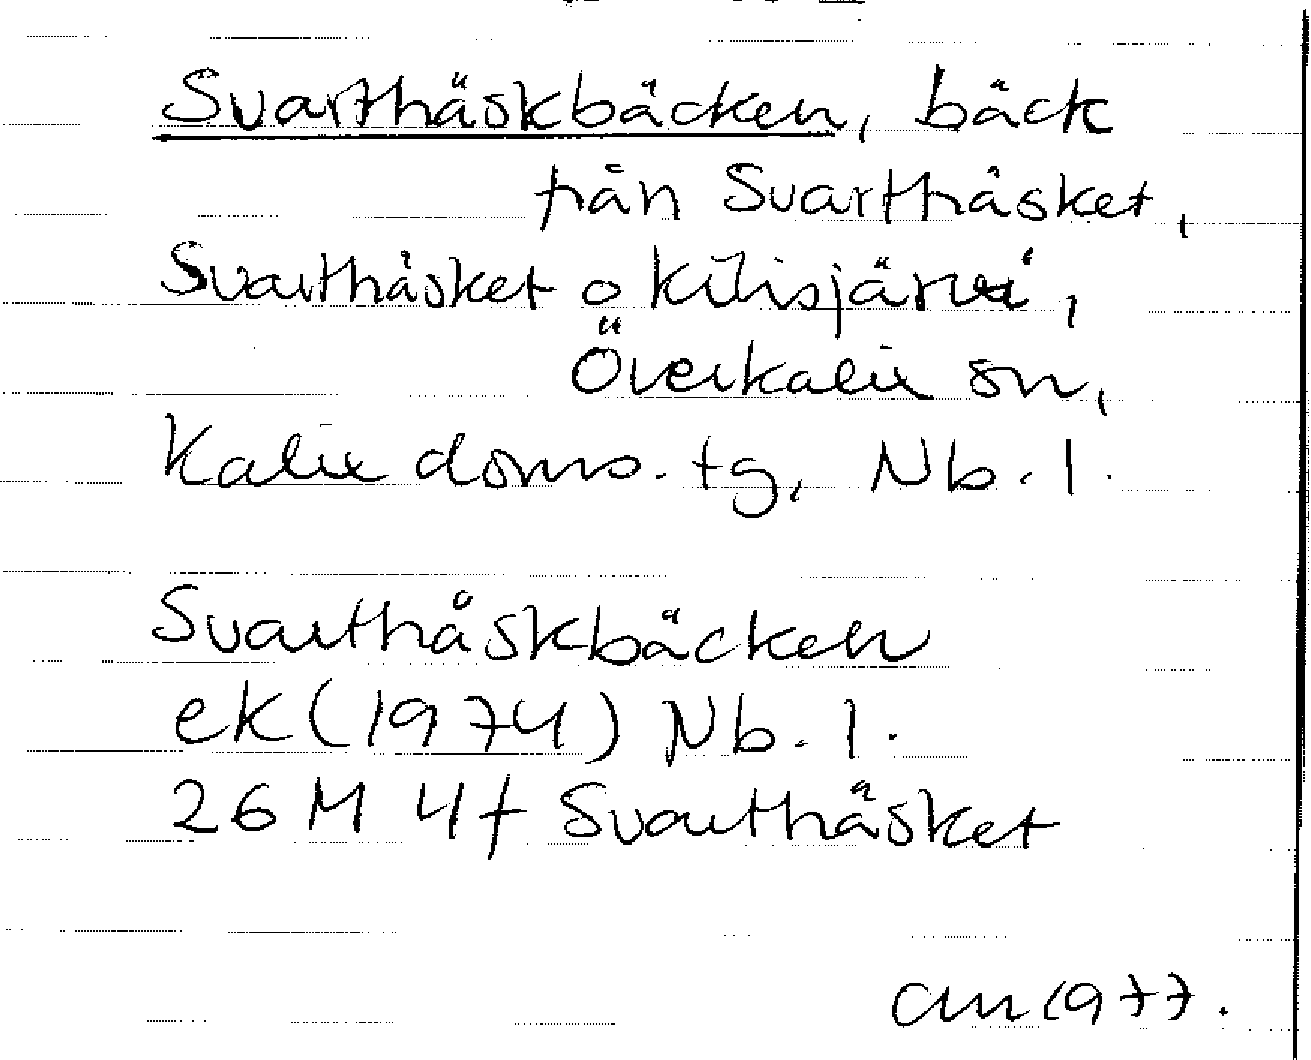 Svartträskbäcken, bäck
från Svartträsket,
Svartträsket o Kilisjärvi,
Överkalix sn,
Kalix doms. tg, Nb. l.
Svartträskbäcken
ek (1974) Nb. l.
26 M 4f Svartträsket
1977.